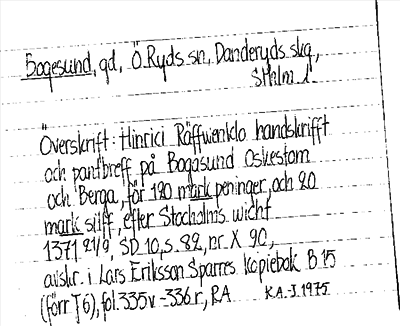 Bogesund, gd, Ö. Ryds sn, Danderyds skg,
Sthlms l.
Överskrift: Hinrici Räffwenklo handskrifft
och pantbreff på Bogasund Oskestom
och Berga, för 120 mark peninger, och 20
mark silff, efter Stocholms wicht
1371 21/9, SD 10, s. 82, nr. X 90,
avskr. i Lars Eriksson Sparres kopiebok B 15
(förr J 6), fol. 335 v - 336 r, RA K.A.-J. 1975